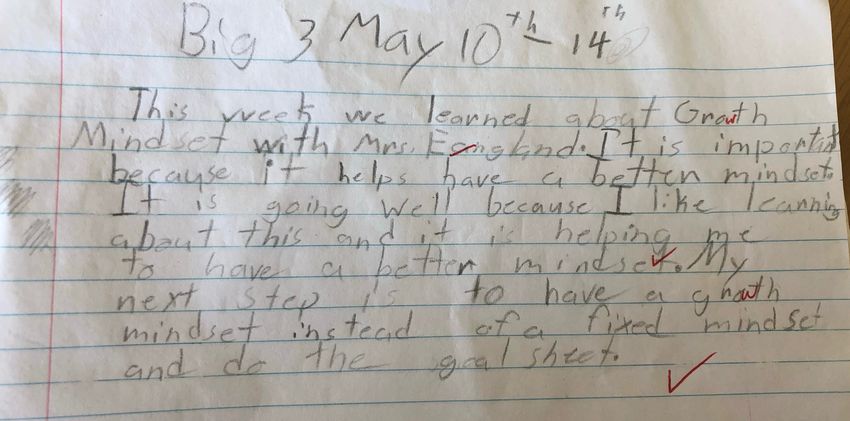 Big 3 May 10th - 14th
This week we learned about Growth
Mindset with Mrs. England. It is importint
because it helps have a better mindset.
It is going well because I like learning
about this and it is helping me
to have a better mindset. My
next step is to have a growth
mindset instead of a fixed mindset
and do the goal sheet.